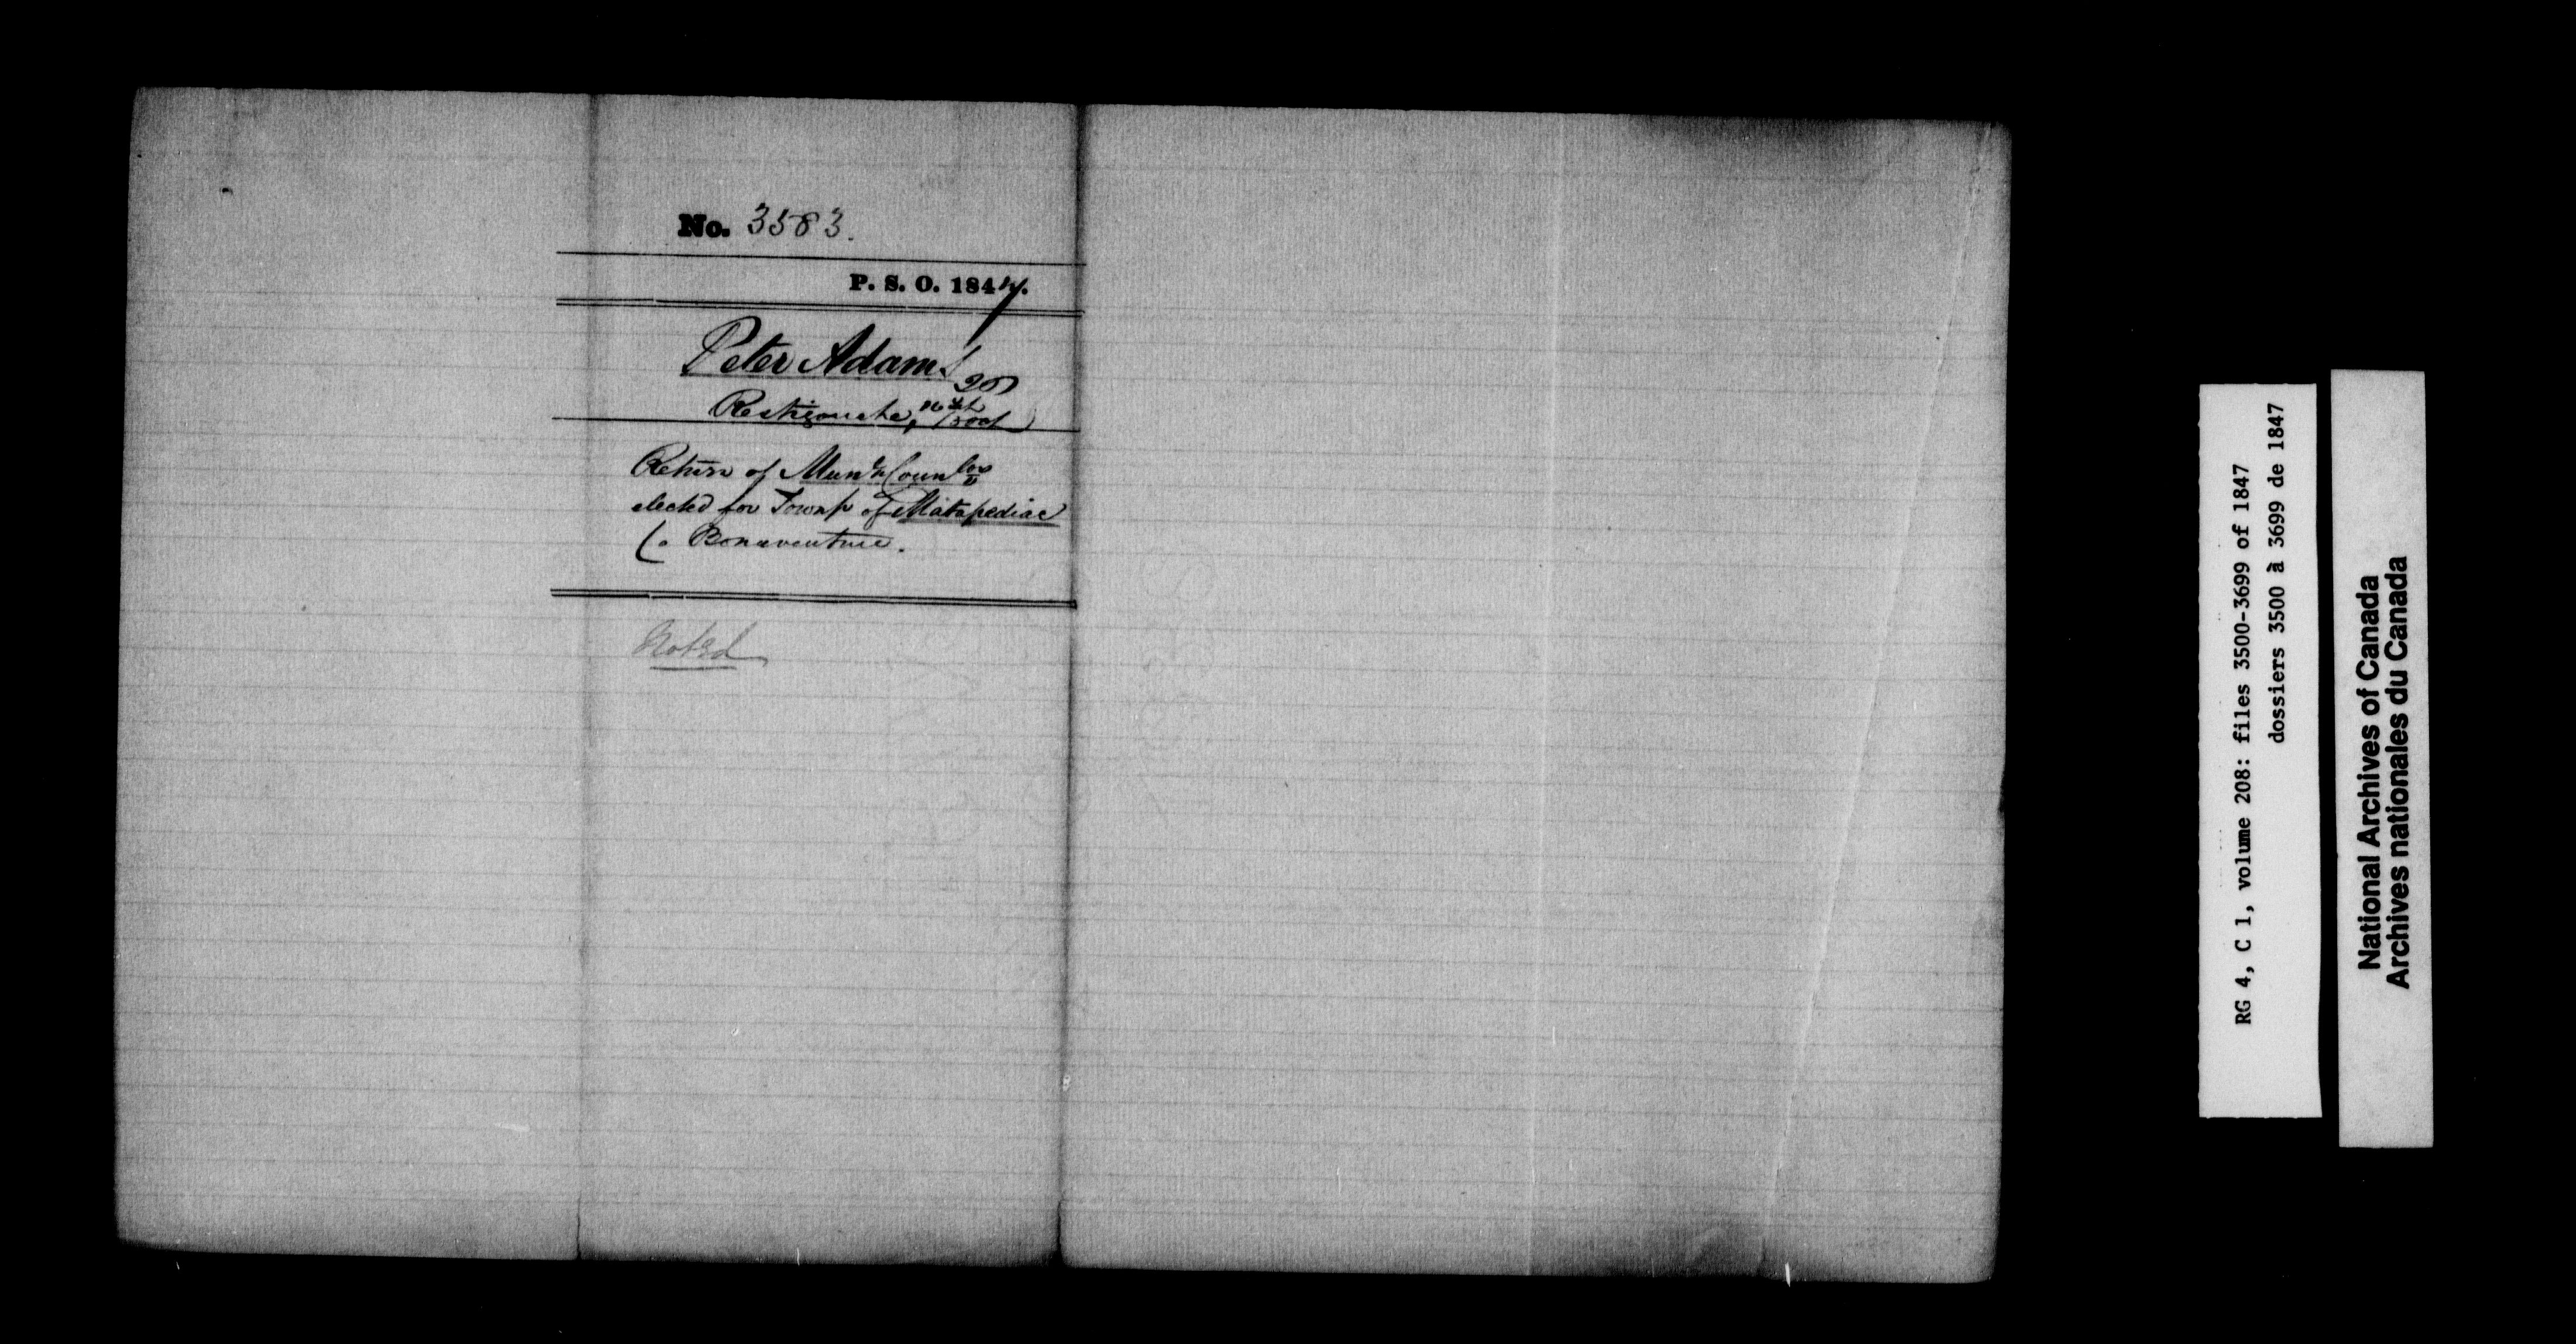 No. 3583.
P. S. O. 1847.
Peter Adams
Restigouche,
Return of Munl Counlors
elected for Townp of Matapediac
Co Bonaventure.
Noted
RG 4, C 1, volume 208: files 3500-3699 of 1847
dossiers 3500 à 3699 de 1847
National Archives of Canada
Archives nationales du Canada